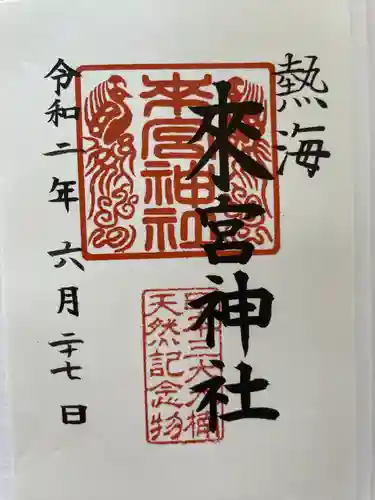 熱海
來宮神社
令和二年六月二十七日
来宮神社
日本三大樟
天然記念物